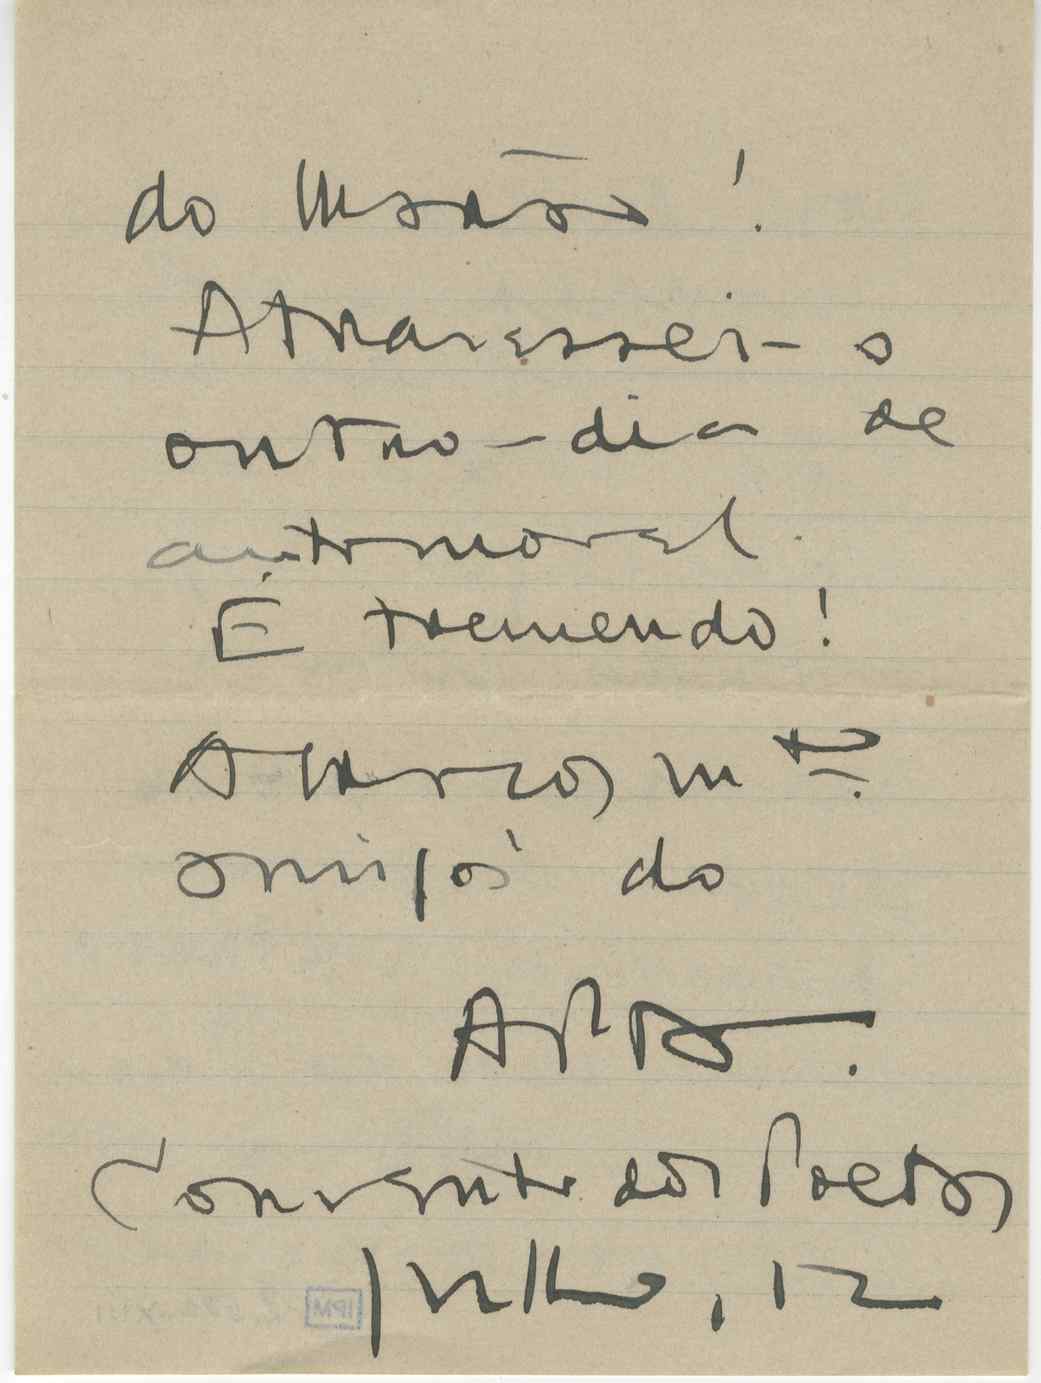 do Marão!
Atravessei-o
outro-dia de
automovel.
É tremendo!
Abraços mto.
amigos do
Convento dos Poetas
Julho, 12